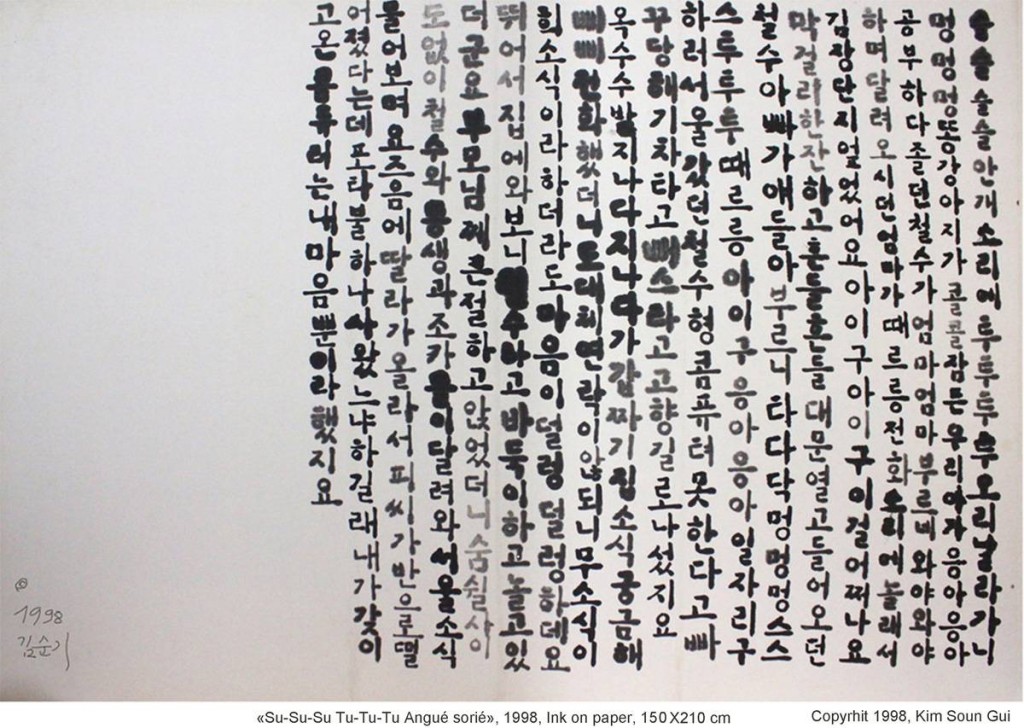 슬슬슬슬안개소리에투투투투오리날라가니
멍멍멍똥강아지가콜콜잠든우리아가응아응아
공부하다졸던철수가엄마엄마부르네와야와야
하며달려오시던엄마가때르릉전화소리에놀래서
김장단지엎었어요아이구아이구이걸어쩌나요
막걸리한잔하고흔들흔들대문열고들어오던
철수아빠가애들아부르니타다닥멍멍멍스스
스투투투때르릉아이구응아응아일자리구
하러서울갔던철수형콤퓨터못한다고빠
꾸당해기차타고뻐스타고고향길로나섰지요
옥수수밭지나다지나다가갑짜기집소식궁금해
삐삐전화했더니도대체연락이않되니무소식이
희소식이라하더라도마음이덜렁덜렁하데요
뛰어서집에와보니 바둑이하고놀고있
더군요부모님께큰절하고앉었더니숨쉴사이
도없이철수와동생과조카들이달려와서울소식
물어보며요즈음에딸라가올라서피씨가반으로떨
어졌다는데포타불하나사왔느냐하길래내가갖이
고온 내마음뿐이라했지요
© 1998
김순기
«Su-Su-Su Tu-Tu-Tu Angué sorié», 1998, Ink on paper, 150X210 cm
Copyrhit 1998, Kim Soun Gui